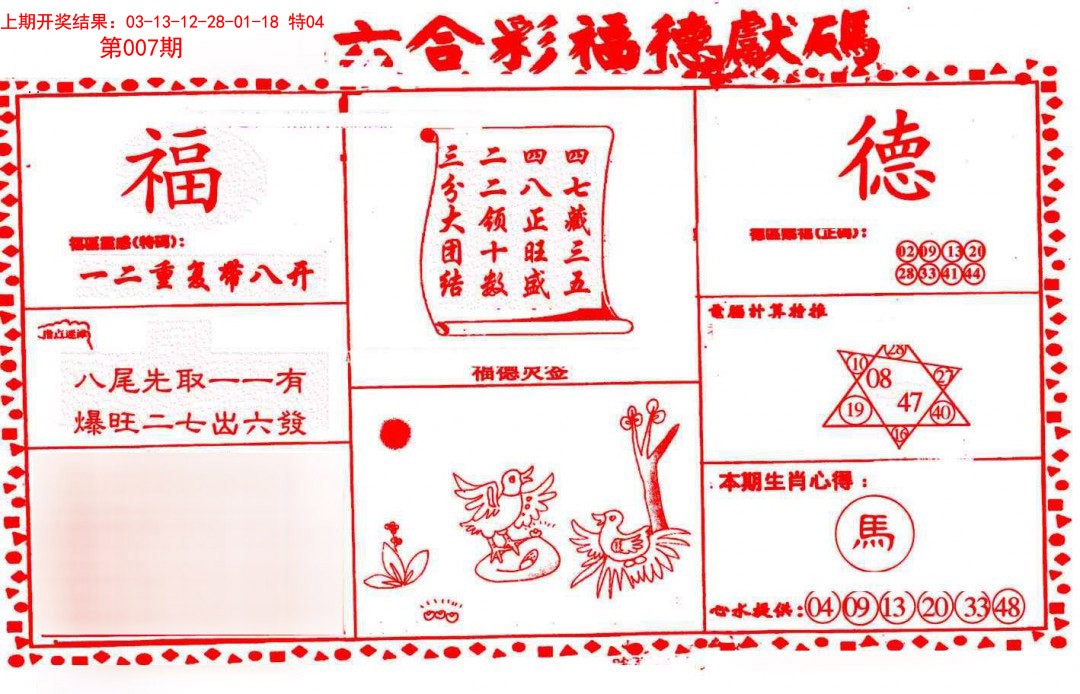 上期开奖结果：03-13-12-28-01-18 特04
第007期
六合彩福德獻碼
福
德區靈感(特碼)：
一二重复帶八开
八尾先取一一有
爆旺二七出六發
四七藏三五
四八正旺盛
二二领十数
三分大团结
福德灵签
德
(正碼)：
02 09 13 20
28 33 41 44
電腦計算特推
28
10 08 27
19 47 40
16
本期生肖心得：
馬
心水提供：04 09 13 20 33 48